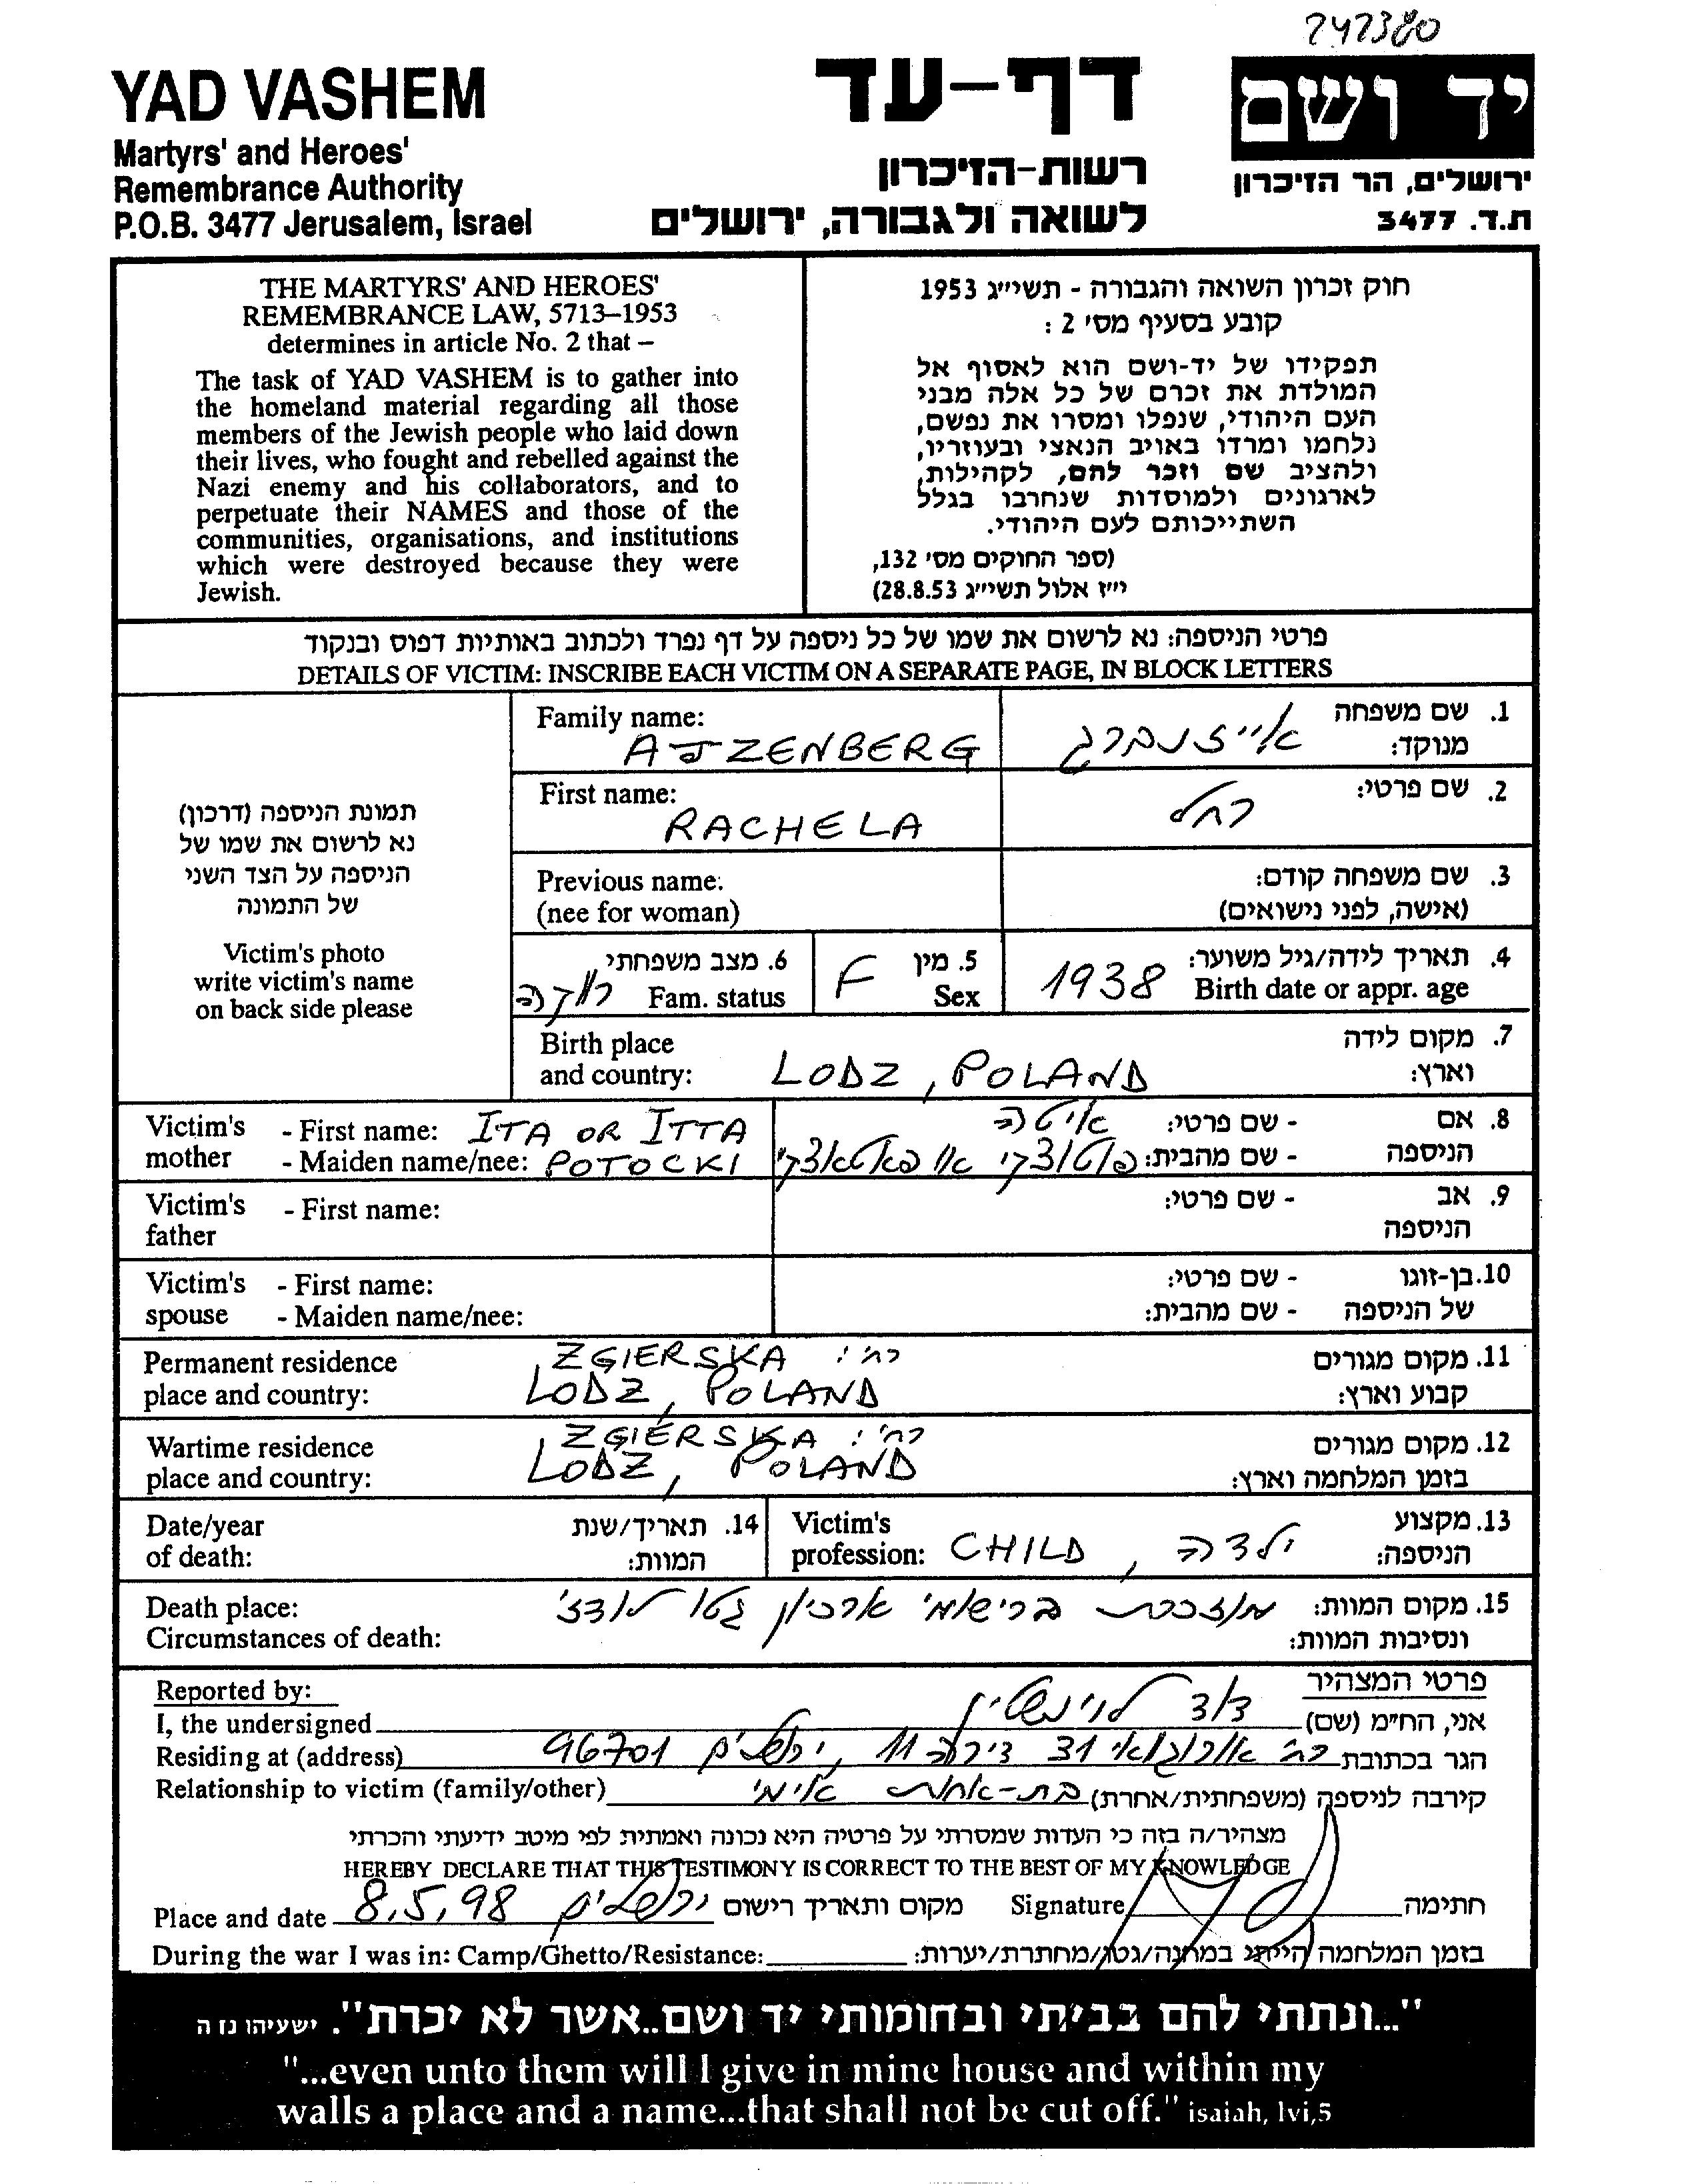 247380
YAD VASHEM
Martyrs' and Heroes'
Remembrance Authority
P.O.B. 3477 Jerusalem, Israel
דף-עד
רשות-הזיכרון
לשואה ולגבורה, ירושלים
יד ושם
ירושלים, הר הזיכרון
ת.ד. 3477
THE MARTYRS' AND HEROES'
REMEMBRANCE LAW, 5713–1953
determines in article No. 2 that –
The task of YAD VASHEM is to gather into
the homeland material regarding all those
members of the Jewish people who laid down
their lives, who fought and rebelled against the
Nazi enemy and his collaborators, and to
perpetuate their NAMES and those of the
communities, organisations, and institutions
which were destroyed because they were
Jewish.
חוק זכרון השואה והגבורה - תשי״ג 1953
קובע בסעיף מס׳ 2 :
תפקידו של יד-ושם הוא לאסוף אל
המולדת את זכרם של כל אלה מבני
העם היהודי, שנפלו ומסרו את נפשם,
נלחמו ומרדו באויב הנאצי ובעוזריו,
ולהציב שם וזכר להם, לקהילות,
לארגונים ולמוסדות שנחרבו בגלל
השתייכותם לעם היהודי.
(ספר החוקים מס׳ 132,
י״ז אלול תשי״ג 28.8.53)
פרטי הניספה: נא לרשום את שמו של כל ניספה על דף נפרד ולכתוב באותיות דפוס ובנקוד
DETAILS OF VICTIM: INSCRIBE EACH VICTIM ON A SEPARATE PAGE, IN BLOCK LETTERS
תמונת הניספה (דרכון)
נא לרשום את שמו של
הניספה על הצד השני
של התמונה
Victim's photo
write victim's name
on back side please
Family name: AJZENBERG
1. שם משפחה מנוקד: אייזנברג
First name: RACHELA
2. שם פרטי: רחל
Previous name:
(nee for woman)
3. שם משפחה קודם:
(אישה, לפני נישואים)
4. תאריך לידה/גיל משוער:
Birth date or appr. age 1938
5. מין Sex F
6. מצב משפחתי Fam. status רווקה
Birth place
and country: LODZ, POLAND
7. מקום לידה
וארץ:
Victim's mother - First name: ITA OR ITTA
- Maiden name/nee: POTOCKI
8. אם הניספה - שם פרטי: איטה
- שם מהבית: פוטוצקי או פאטאוצקי
Victim's father - First name:
9. אב הניספה - שם פרטי:
Victim's spouse - First name:
- Maiden name/nee:
10. בן-זוגו של הניספה - שם פרטי:
- שם מהבית:
Permanent residence
place and country:
רח׳: ZGIERSKA,
LODZ, POLAND
11. מקום מגורים
קבוע וארץ:
Wartime residence
place and country:
רח׳: ZGIERSKA,
LODZ, POLAND
12. מקום מגורים
בזמן המלחמה וארץ:
Date/year
of death:
14. תאריך/שנת
המוות:
Victim's
profession: CHILD, ילדה
13. מקצוע
הניספה:
Death place:
Circumstances of death:
15. מקום המוות:
ונסיבות המוות:
מוזכרת ברישומי ארכיון גטו לודז׳
Reported by:
פרטי המצהיר
I, the undersigned
אני, הח״מ (שם) דוד לוינשטין
Residing at (address)
הגר בכתובת רח׳ 31 דירה 11, ירושלים 96701
Relationship to victim (family/other)
קירבה לניספה (משפחתית/אחרת) בת-אחות אימי
מצהיר/ה בזה כי העדות שמסרתי על פרטיה היא נכונה ואמתית לפי מיטב ידיעתי והכרתי
HEREBY DECLARE THAT THIS TESTIMONY IS CORRECT TO THE BEST OF MY KNOWLEDGE
Place and date 8.5.98 ירושלים מקום ותאריך רישום
Signature חתימה
During the war I was in: Camp/Ghetto/Resistance:
בזמן המלחמה הייתי במחנה/גטו/מחתרת/יערות:
"...ונתתי להם בביתי ובחומותי יד ושם..אשר לא יכרת". ישעיהו נז ה
"...even unto them will I give in mine house and within my
walls a place and a name...that shall not be cut off." isaiah, lvi,5